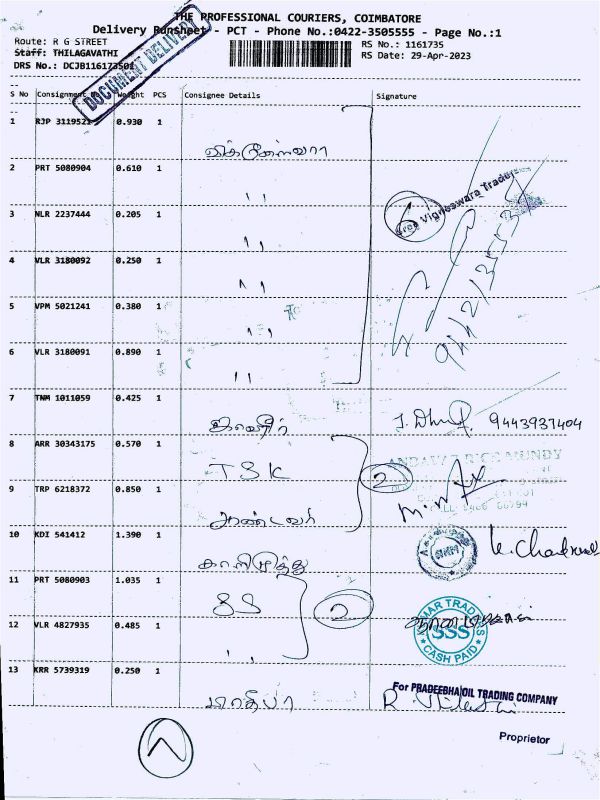 THE PROFESSIONAL COURIERS, COIMBATORE
Delivery Runsheet - PCT - Phone No.:0422-3505555 - Page No.:1
Route: R G STREET
RS No.: 1161735
Staff: THILAGAVATHI
RS Date: 29-Apr-2023
DRS No.: DCJB116173501
DOCUMENT DELIVERY
S No Consignment No Weight PCS Consignee Details Signature
1 RJP 3119521 0.930 1
விக்னேஸ்வரா
2 PRT 5080904 0.610 1
,,
Sree Vigneswara Traders
6
3 NLR 2237444 0.205 1
,,
4 VLR 3180092 0.250 1
,,
5 VPM 5021241 0.380 1
,,
6 VLR 3180091 0.890 1
,,
7 TNM 1011059 0.425 1
9443937404
8 ARR 30343175 0.570 1
TSK
2
9 TRP 6218372 0.850 1
ஆண்டவர்
10 KDI 541412 1.390 1
காளிமுத்து
11 PRT 5080903 1.035 1
SS
2
KUMAR TRADERS
SSS
CASH PAID
12 VLR 4827935 0.485 1
,,
13 KRR 5739319 0.250 1
பிரதீபா
For PRADEEBHA OIL TRADING COMPANY
Proprietor